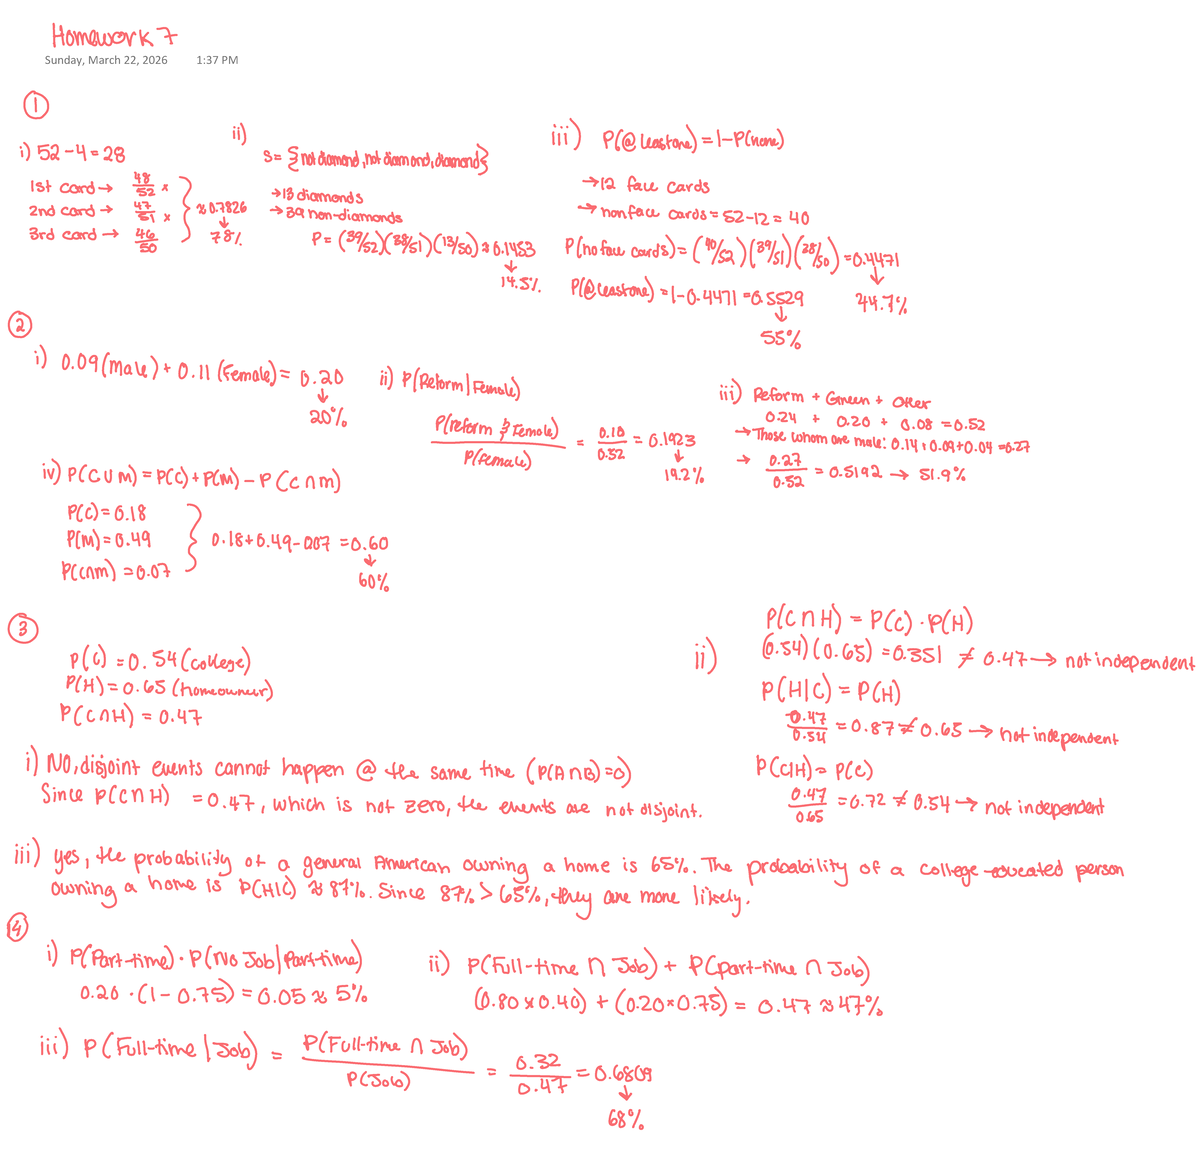 Homework 7
Sunday, March 22, 2026 1:37 PM
①
i) 52-4=28
1st card → 48/52 ×
2nd card → 47/51 ×
3rd card → 46/50
≈ 0.7826
↓
78%
ii)
S= {not diamond, not diamond, diamond}
→13 diamonds
→39 non-diamonds
P= (39/52)(38/51)(13/50) ≈ 0.1453
↓
14.5%
iii) P(@least one) = 1-P(none)
→12 face cards
→ nonface cards = 52-12 = 40
P(no face cards) = (40/52)(39/51)(38/50) =0.4471
↓
44.7%
P(@least one) = 1-0.4471 =0.5529
↓
55%
②
i) 0.09(Male) + 0.11 (Female) = 0.20
↓
20%
ii) P(Reform|Female)
P(reform & Female)/P(female) = 0.10/0.52 = 0.1923
↓
19.2%
iii) Reform + Green + Other
0.24 + 0.20 + 0.08 =0.52
→ Those whom are male: 0.14+0.09+0.04 =0.27
→ 0.27/0.52 = 0.5192 → 51.9%
iv) P(C∪M) = P(C)+P(M)-P(C∩M)
P(C)=0.18
P(M)=0.49
P(C∩M) =0.07
0.18+0.49-0.07 =0.60
↓
60%
③
P(C) =0.54 (college)
P(H) =0.65 (homeowner)
P(C∩H) = 0.47
i) NO, disjoint events cannot happen @ the same time (P(A∩B)=0)
Since P(C∩H) =0.47, which is not zero, the events are not disjoint.
ii)
P(C∩H) = P(C)·P(H)
(0.54)(0.65) =0.351 ≠ 0.47 → not independent
P(H|C) = P(H)
0.47/0.54 = 0.87 ≠ 0.65 → not independent
P(C|H) = P(C)
0.47/0.65 =0.72 ≠ 0.54 → not independent
iii) yes, the probability of a general American owning a home is 65%. The probability of a college-educated person
owning a home is P(H|C) ≈ 87%. Since 87% > 65%, they are more likely.
④
i) P(Part-time)·P(No Job|Part-time)
0.20 ·(1-0.75) = 0.05 ≈ 5%
ii) P(Full-time ∩ Job) + P(part-time ∩ Job)
(0.80×0.40) + (0.20×0.75) = 0.47 ≈ 47%
iii) P(Full-time | Job) = P(Full-time ∩ Job)/P(Job) = 0.32/0.47 = 0.6809
↓
68%